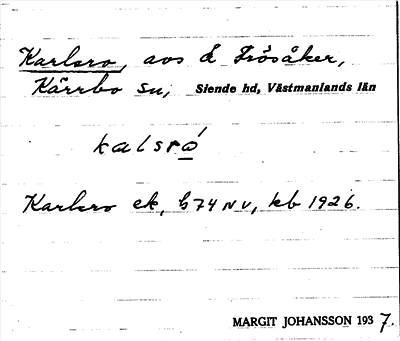 Karlsro, avs å Frösåker,
Kärrbo sn, Siende hd, Västmanlands län
kalsró
Karlsro ek, b74NV, kb 1926.
MARGIT JOHANSSON 1937.